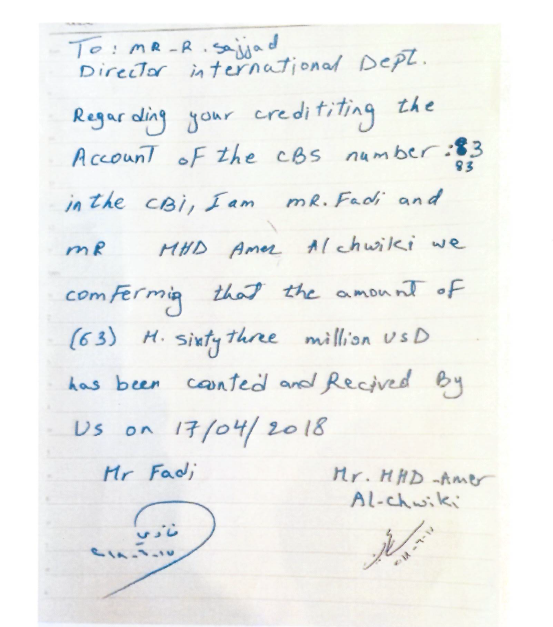 To: MR-R. Sajjad
Director international Dept.
Regarding your credititing the
Account of the CBS number :83
83
in the CBi, I am MR. Fadi and
MR MHD Amer Alchwiki we
comfermig that the amount of
(63) M. sixty three million USD
has been counted and Recived By
Us on 17/04/2018
Mr Fadi
Mr. MHD-Amer
Al-chwiki